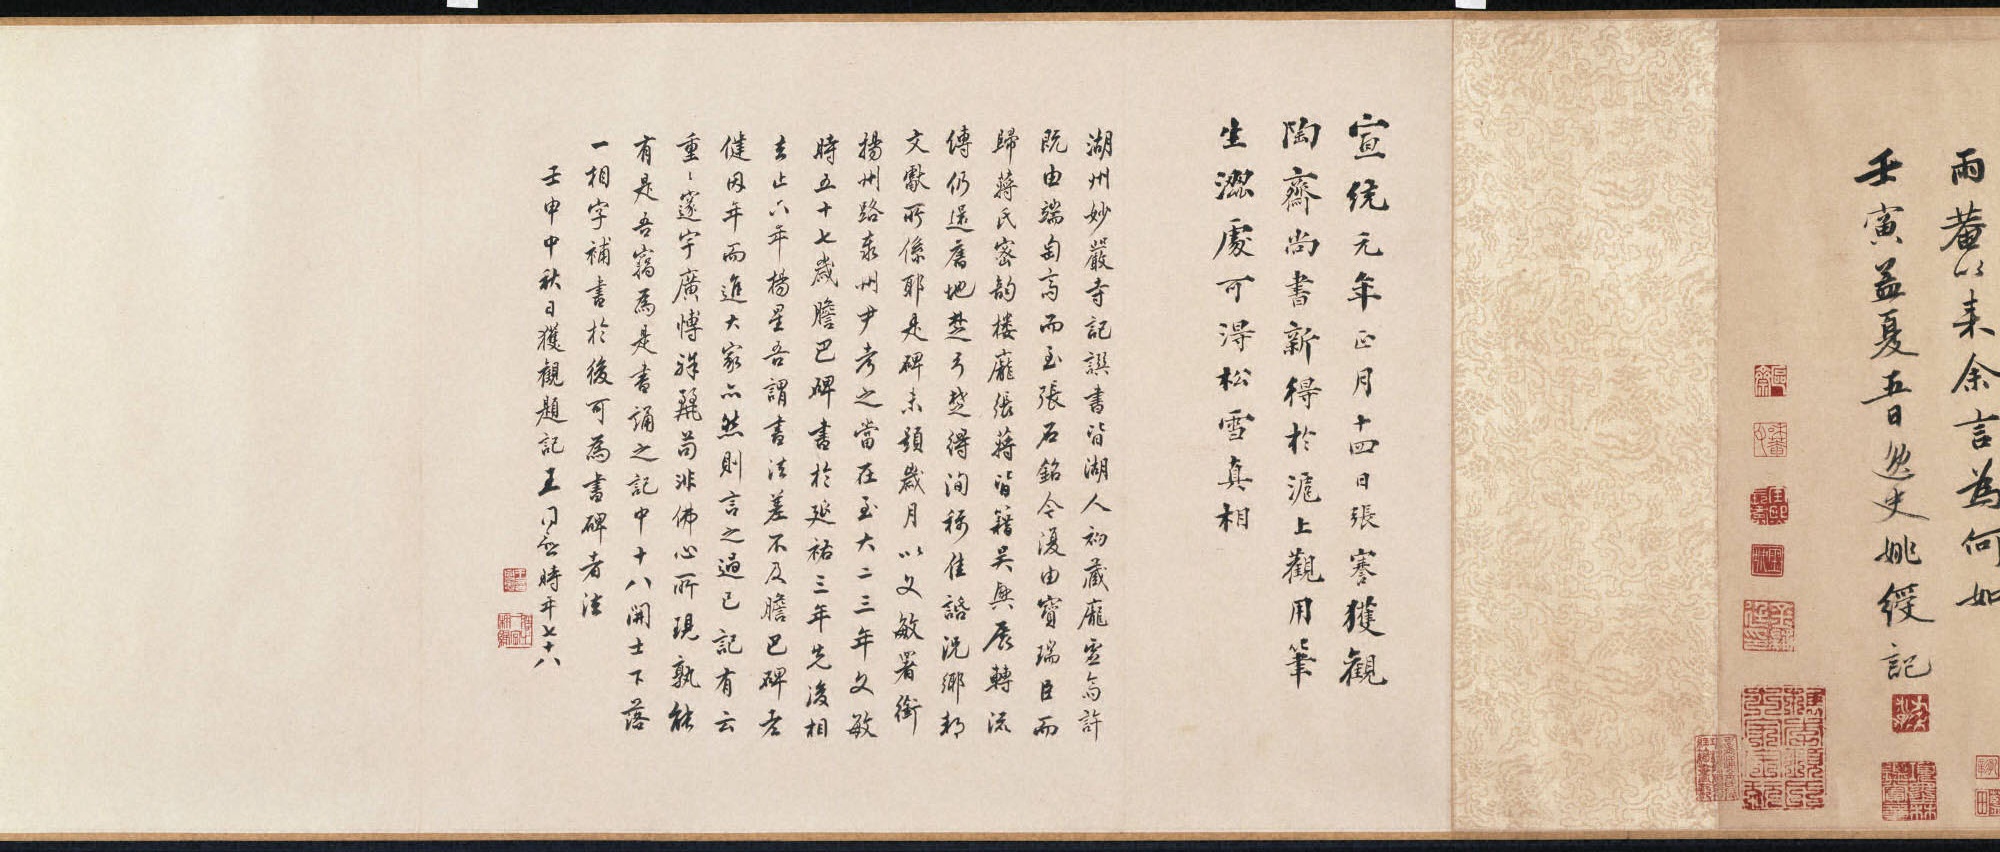 雨菴以來余言為何如
壬寅孟夏五日逸史姚綬記
宣統元年正月十四日張謇獲觀
陶齋尚書新得於滬上觀用筆
生澀處可得松雪真相
湖州妙嚴寺記譔書皆湖人初藏龐虛齋許
既由端匋齋而至張石銘今復由寶瑞臣而
歸蔣氏密韵樓龐張蔣皆籍吳興展轉流
傳仍還舊地楚弓楚得洵稱佳話況鄉邦
文獻所係耶是碑未題歲月以文敏署銜
揚州路泰州尹考之當在至大二三年文敏
時五十七歲膽巴碑書於延祐三年先後相
去止六年楊星吾謂書法差不及膽巴碑老
健因年而進大家亦然則言之過已記有云
重〻邃宇廣博殊麗苟非佛心所現孰能
有是吾竊為是書誦之記中十八開士下落
一相字補書於後可為書碑者法
壬申中秋日獲觀題記王同愈時年七十八